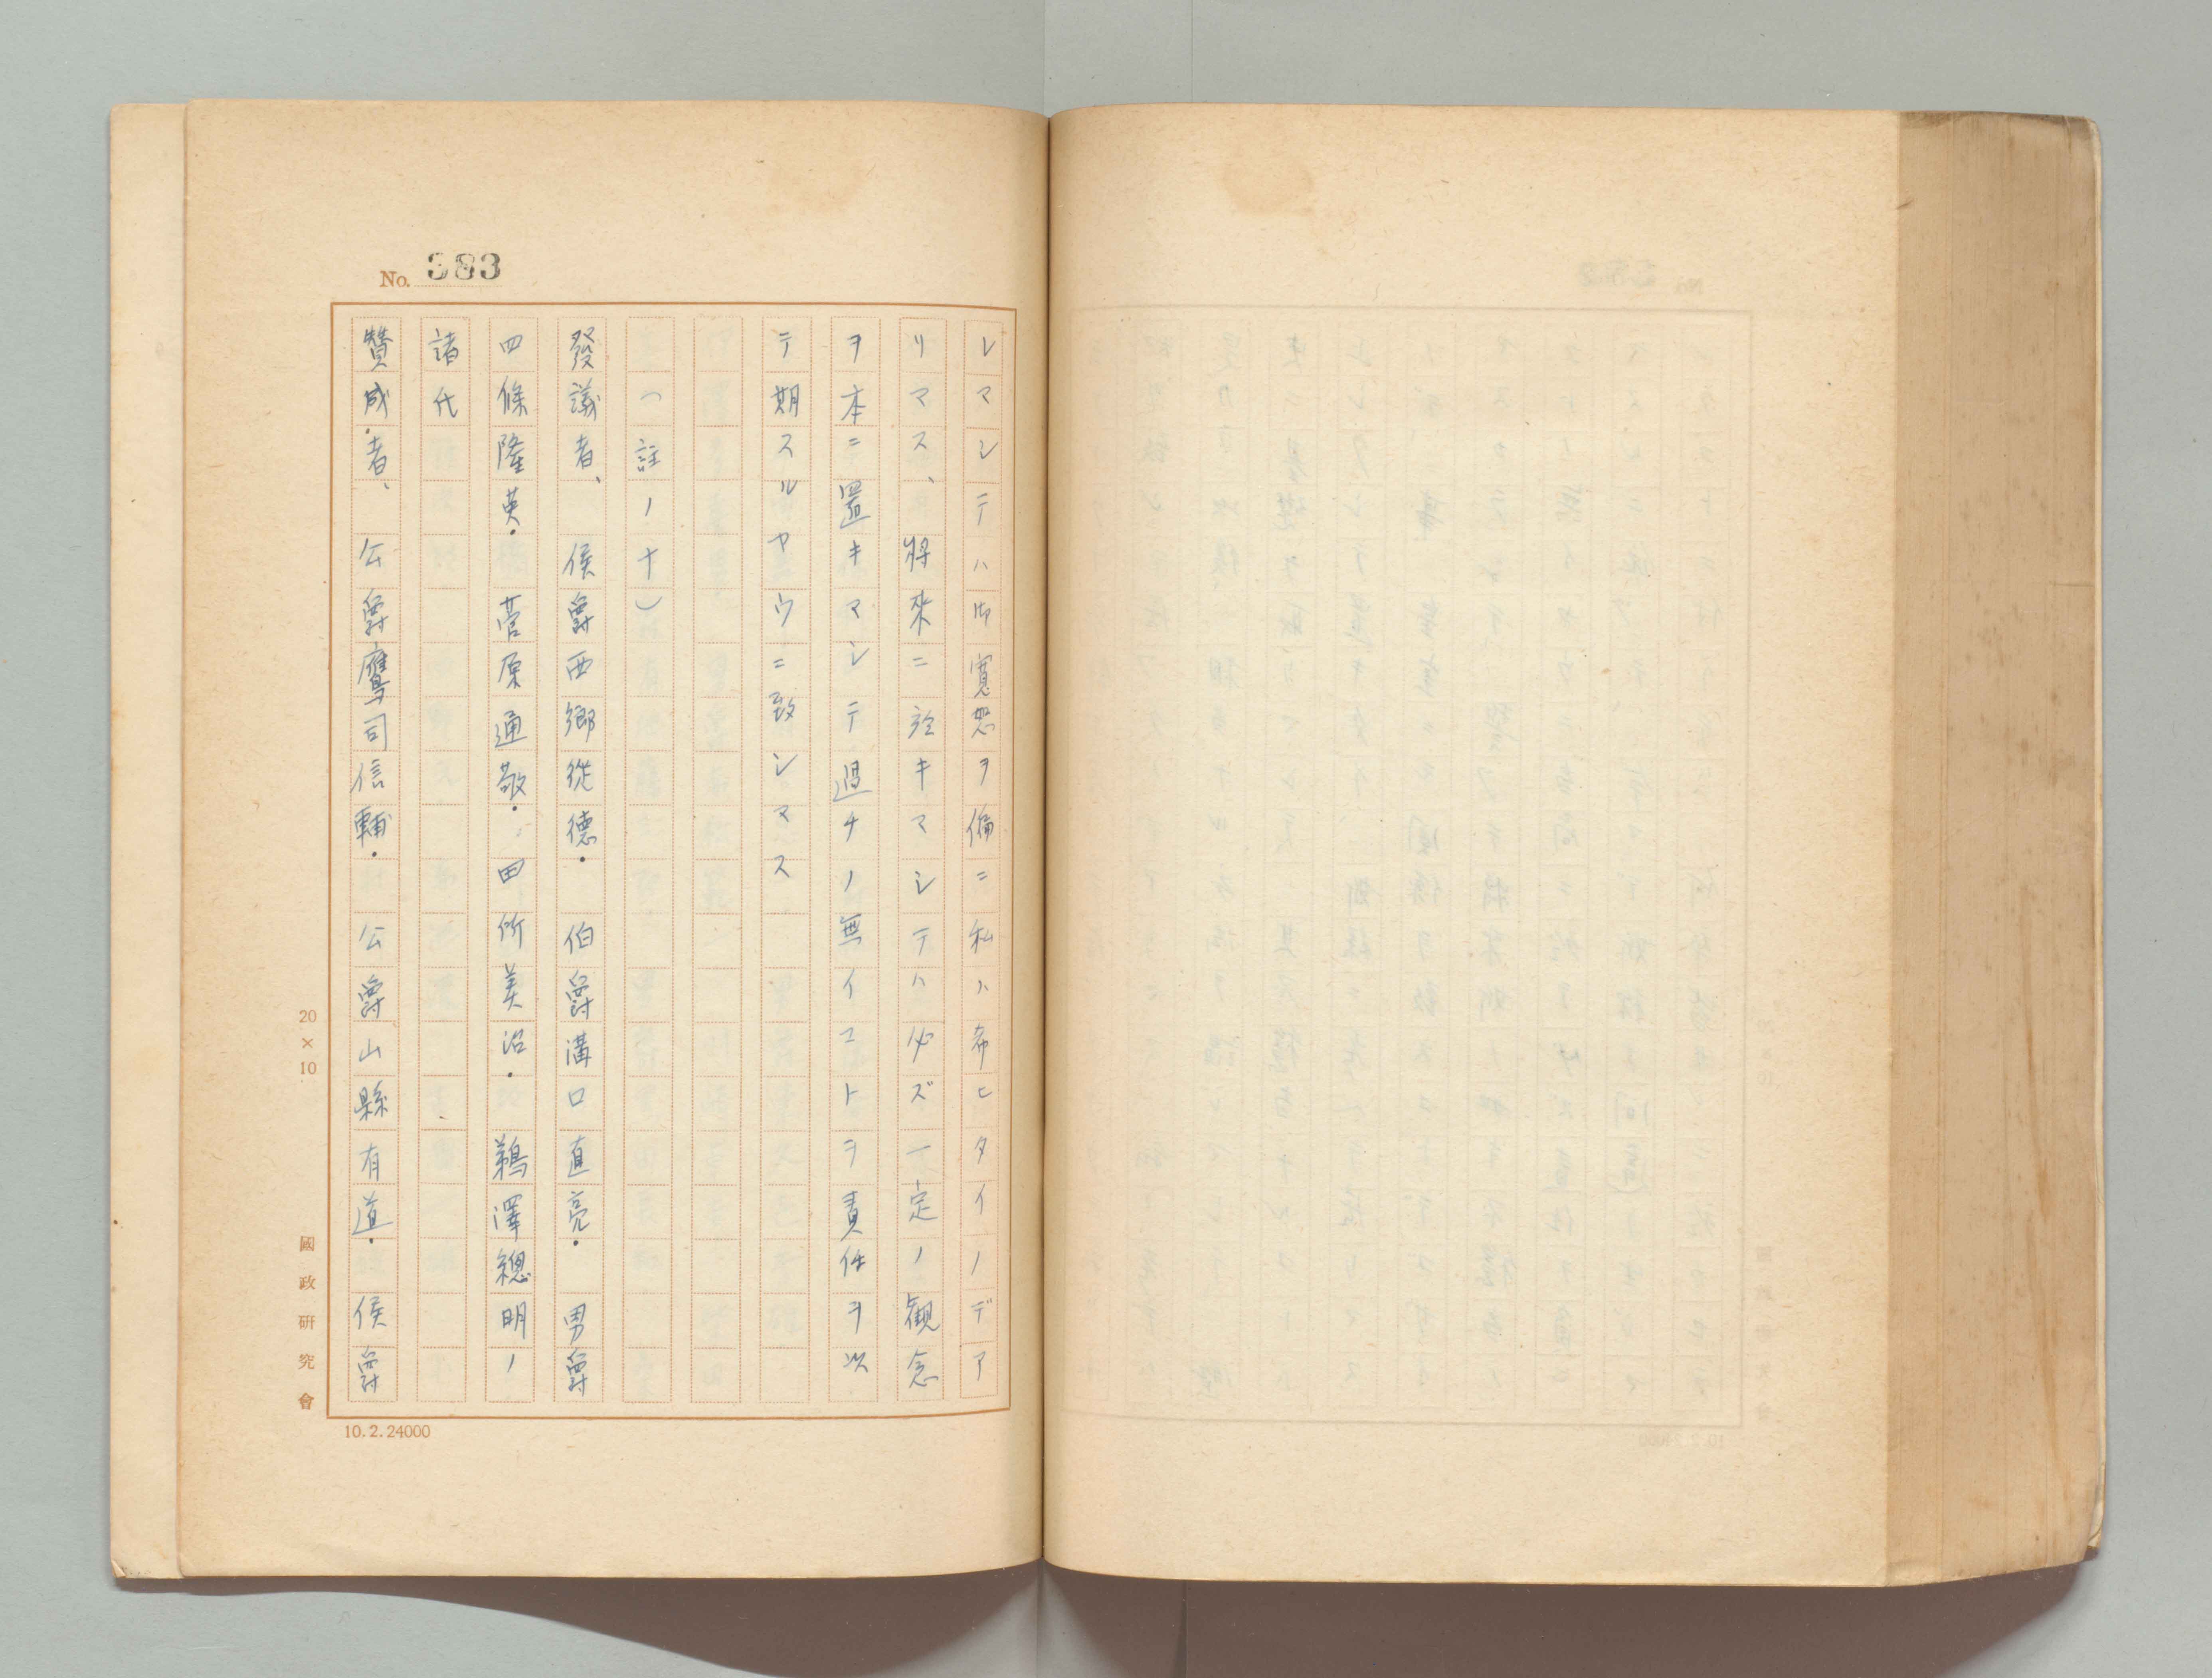 No. 383
レマシテハ御寛恕ヲ偏ニ私ハ希ヒタイノデア
リマス、将來ニ於キマシテハ必ズ一定ノ観念
ヲ本ニ置キマシテ過チノ無イコトヲ責任ヲ以
テ期スルヤウニ致シマス
（註ノ十）
發議者、侯爵西郷從德・伯爵溝口直亮・男爵
四條隆英・菅原通敬・田所美治・鵜澤總明ノ
諸代
贊成者、公爵鷹司信輔・公爵山縣有道・侯爵
20×10
國政研究會
10.2.24000